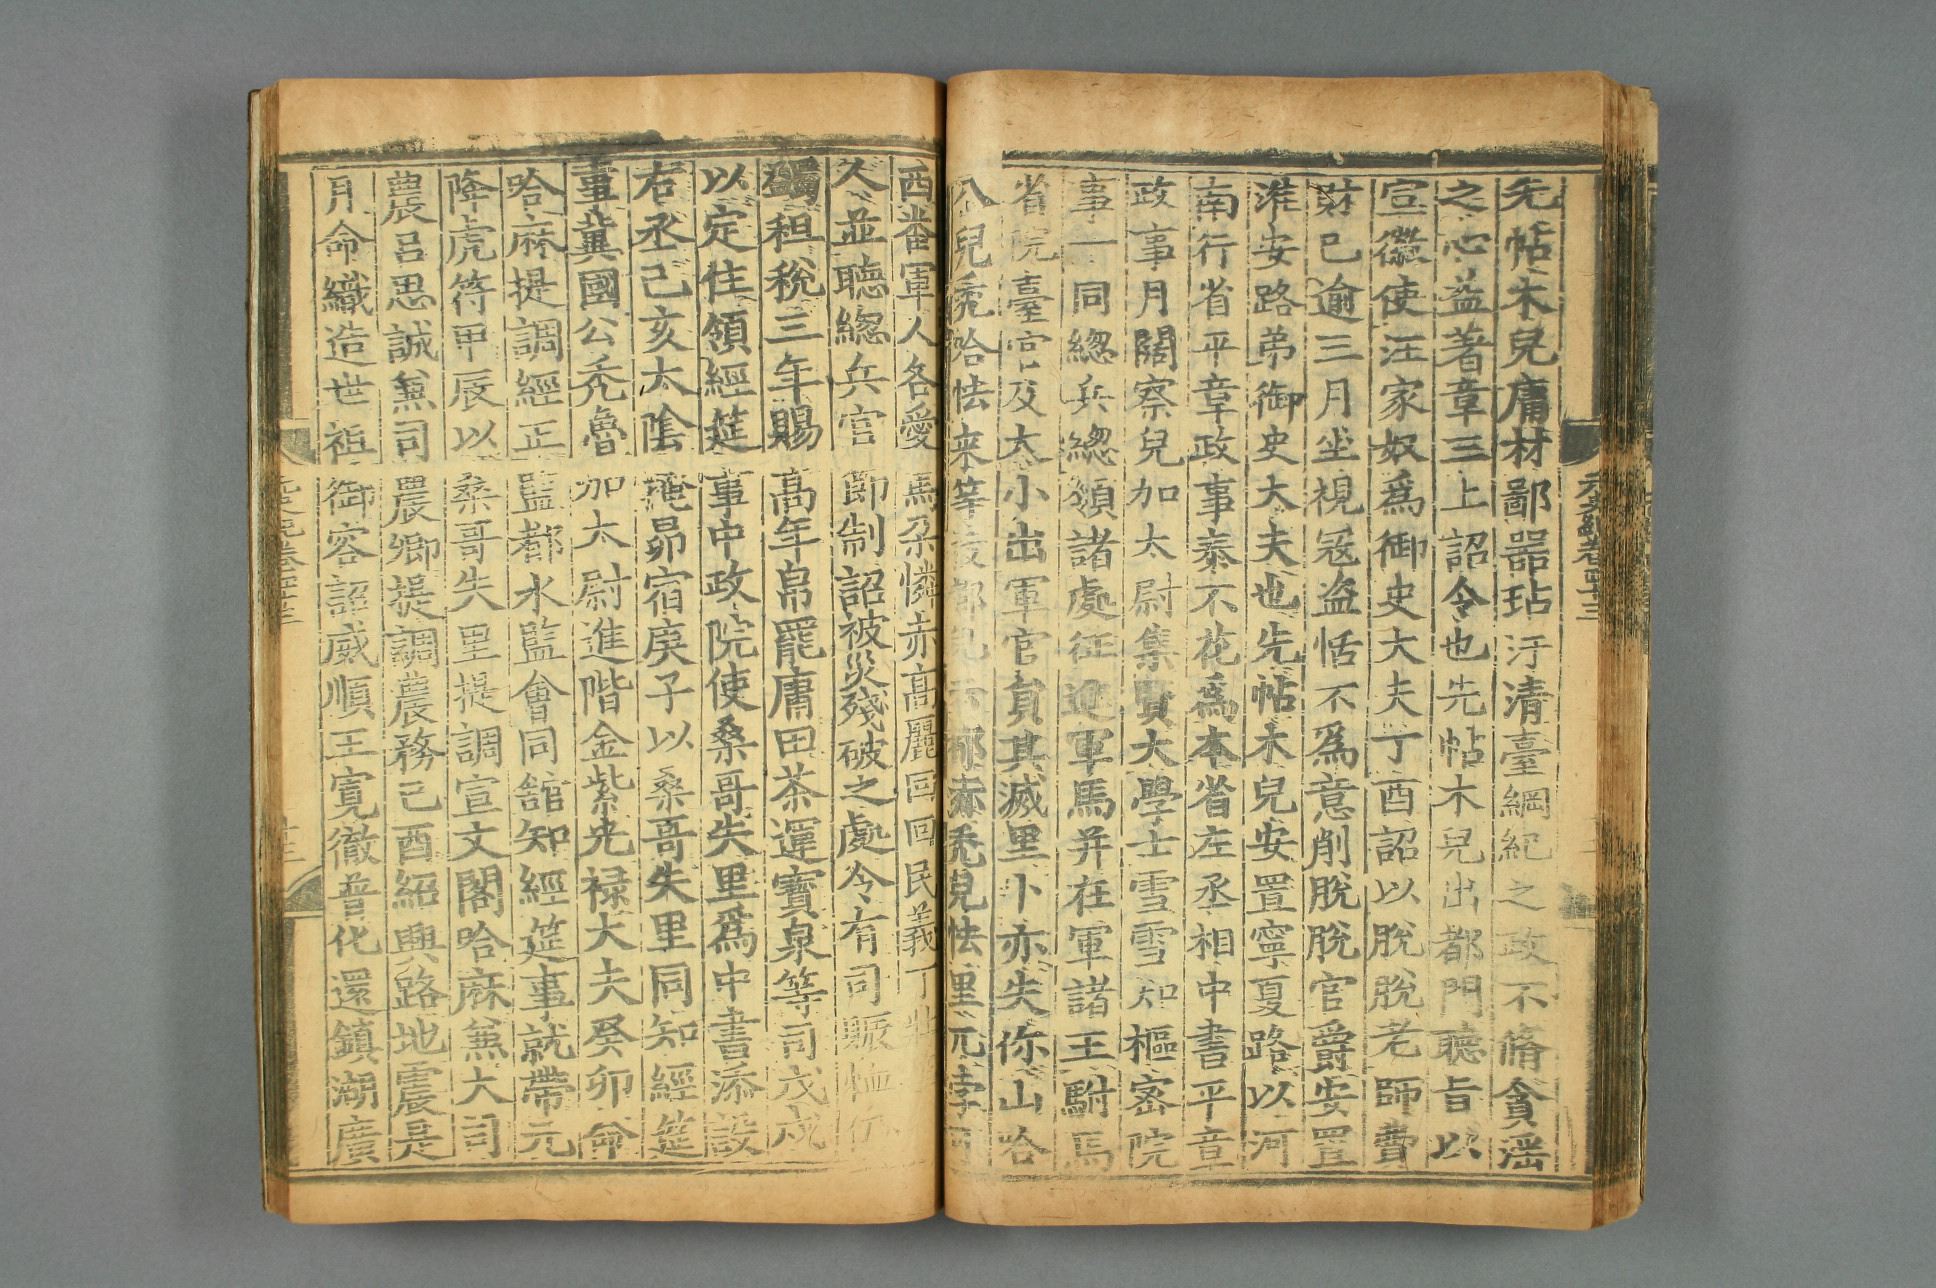 先帖木兒庸材鄙器玷汙清臺綱紀之政不脩貪滛
之心益著章三上詔令也先帖木兒出都門聽旨以
宣徽使汪家奴爲御史大夫丁酉詔以脫脫老師費
財已逾三月坐視冦盗恬不爲意削脫脫官爵安置
淮安路弟御史大夫也先帖木兒安置寧夏路以河
南行省平章政事泰不花爲本省左丞相中書平章
政事月闊察兒加太尉集賢大學士雪雪知樞宻院
事一同緫兵緫領諸處征進軍馬并在軍諸王駙馬
省院臺官及大小出軍官員其滅里卜亦失你山哈
八兒禿哈怯来等拔都兒云都赤禿兒怯里兀孛可
西番軍人各愛馬朶憐赤高麗回回民義丁壯
久並聽緫兵官節制詔被災殘破之處令有司賑恤仍
蠲租稅三年賜高年帛罷庸田茶運寳泉等司戊戌
以定住領經筵事中政院使桑哥失里爲中書添設
右丞己亥太陰掩昴宿庚子以桑哥失里同知經筵
事冀國公禿魯加太尉進階金紫光禄大夫癸卯命
哈麻提調經正監都水監會同館知經筵事就帶元
降虎符甲辰以桑哥失里提調宣文閣哈麻兼大司
農呂思誠兼司農卿提調農務己酉紹興路地震是
月命織造世祖御容詔威順王寛徹普化還鎮湖廣
元史紀卷四十三